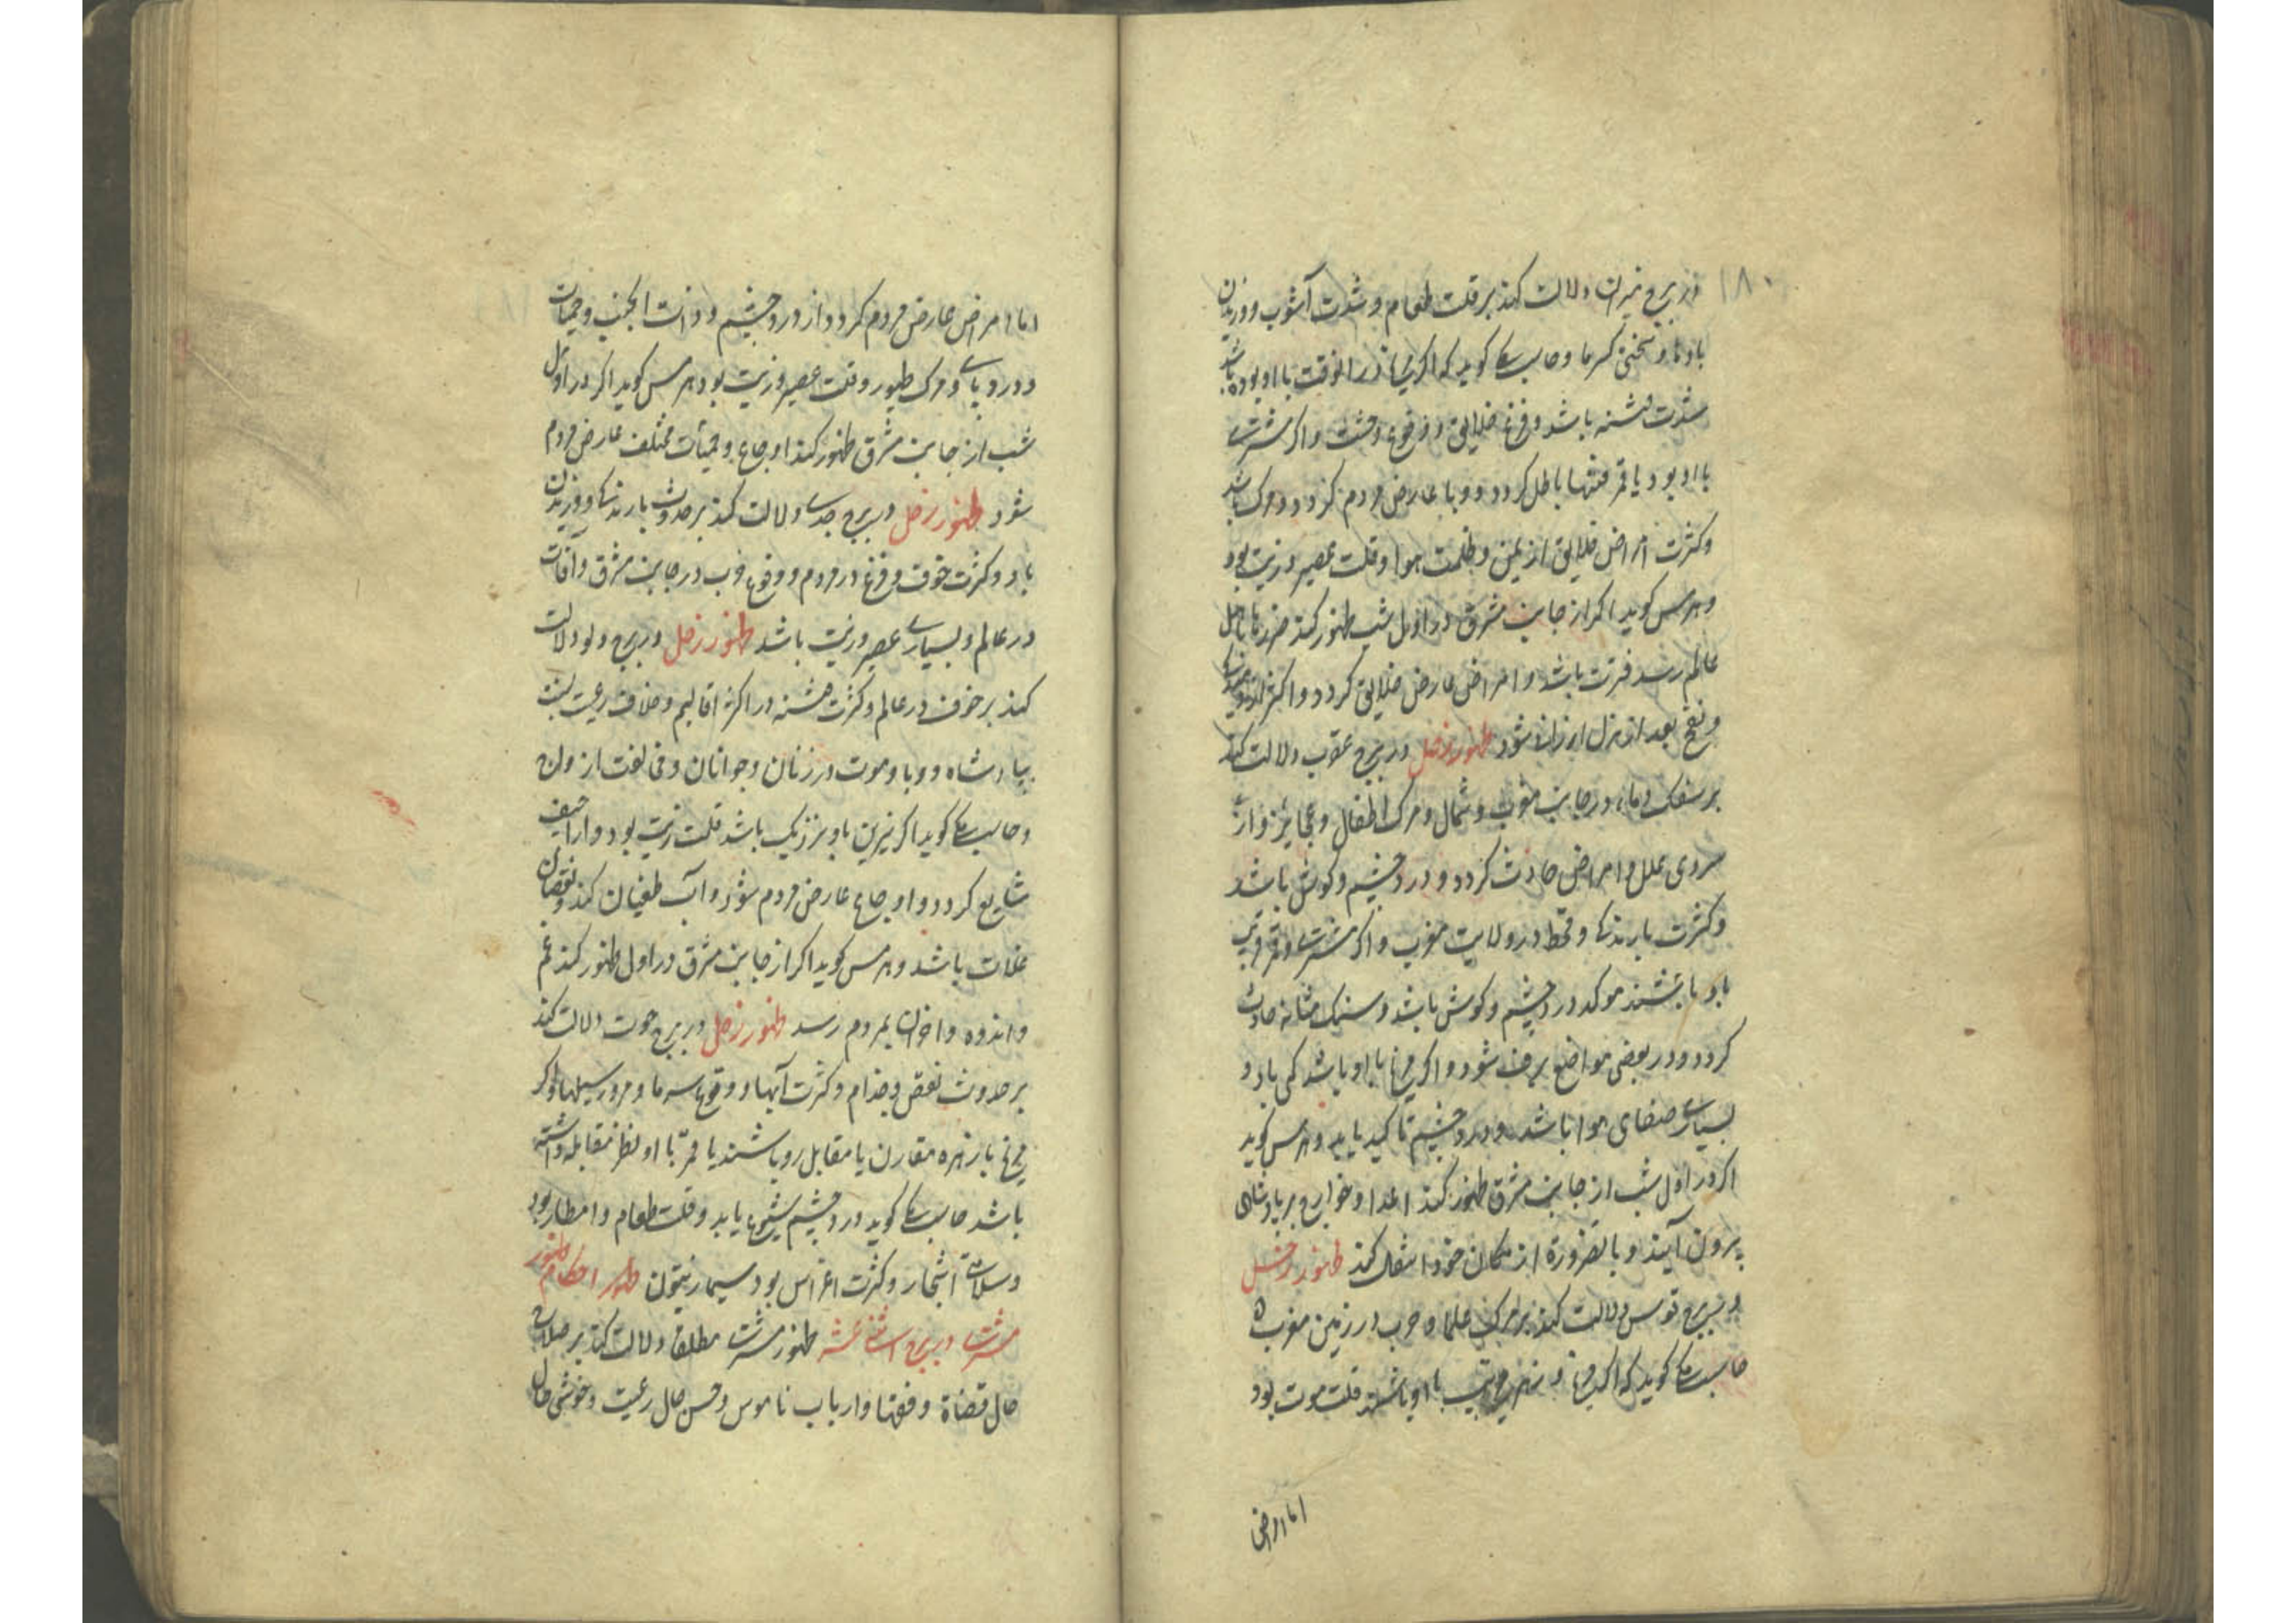 ۱۸۰
در برج میزان دلالت کند بر قلت طعام و شدت آشوب و وزیدن
بادها و سختی سرما و جاماسب کوید که اکر مریخ در آنوقت با او بوده باشد
شدت فتنه باشد و فزع خلایق و وقوع وحشت و اکر مشتری
با او بود یا قمر فتنها باطل کردد و وبا عارض مردم کردد و مرک باشد
و کثرت امراض خلایق از یمن و ظلمت هوا و قلت عصیر و زیت بود
و هرمس کوید اکر از جانب مشرق در اول شب ظهور کند ضررها باهل
عالم رسد فترت باشد و امراض عارض خلایق کردد و اکثر
و نفخ بعد از نزل ارزان شود ظهور زحل در برج عقرب دلالت کند
بر سفک دماء در جانب مغرب و شمال و مرک اطفال و عجایز و از
سردی علل و امراض حادث کردد و درد چشم و کوش باشد
و کثرت بارندکی و قحط در ولایت مغرب و اکر مشتری و قمر قریب
باو باشند موکد درد چشم و کوش باشد و سنک مثانه حادث
کردد و در بعضی مواضع برف شود و اکر مریخ با او باشد کمی باد و
بسیاری صفای هوا باشد و درد چشم تاکید یابد و هرمس کوید
اکر در اول شب از جانب مشرق ظهور کند اعدا و خوارج بر پادشاه
بیرون آیند و بالضروره از مکان خود انتقال کند ظهور زحل
در برج قوس دلالت کند بر مرک علما و حرب در زمین مغرب
جاماسب کوید که اکر مریخ و زهره قریب با او باشند قلت موت بود
اما امراض
اما امراض عارض مردم کردد از درد چشم و ذات الجنب و حمیات
و درد پای و مرک طیور و قلت عصیر و زیت بود هرمس کوید اکر در اول
شب از جانب مشرق ظهور کند اوجاع و حمیات مختلف عارض مردم
شود ظهور زحل در برج جدی دلالت کند بر حدوث بارندکی و وزیدن
باد و کثرت خوف و فزع در مردم و وقوع حرب در جانب مشرق و آفات
در عالم و بسیاری عصیر و زیت باشد ظهور زحل در برج دلو دلالت
کند بر خوف در عالم و کثرت فتنه در اکثر اقالیم و خلاف رعیت نسبت
بپادشاه و وبا و موت در زنان و جوانان و مخالفت از
و جاماسب کوید اکر نیرین باو نزدیک باشد قلت زیت بود و اراجیف
شایع کردد و اوجاع عارض مردم شود و آب طغیان کند و نقصان
غلات باشد و هرمس کوید اکر از جانب مشرق در اول ظهور کند غم
و اندوه و احزان بمردم رسد ظهور زحل در برج حوت دلالت کند
بر حدوث نقص و جذام و کثرت آبها و وقوع سرما و مرور سیلها و اکر
مریخ با زهره مقارن یا مقابل رو باشند یا قمر با او نظر مقابله داشته
باشد جاماسب کوید درد چشم شیوع یابد و قلت طعام و امطار بود
و سلامتی اشجار و کثرت اغراس بود سیما زیتون ظهور احکام ظهور
مشتری در بروج اثنا عشر ظهور مشتری مطلقا دلالت کند بر صلاح
حال قضاة و فقها و ارباب ناموس و حسن حال رعیت و خوشی حال